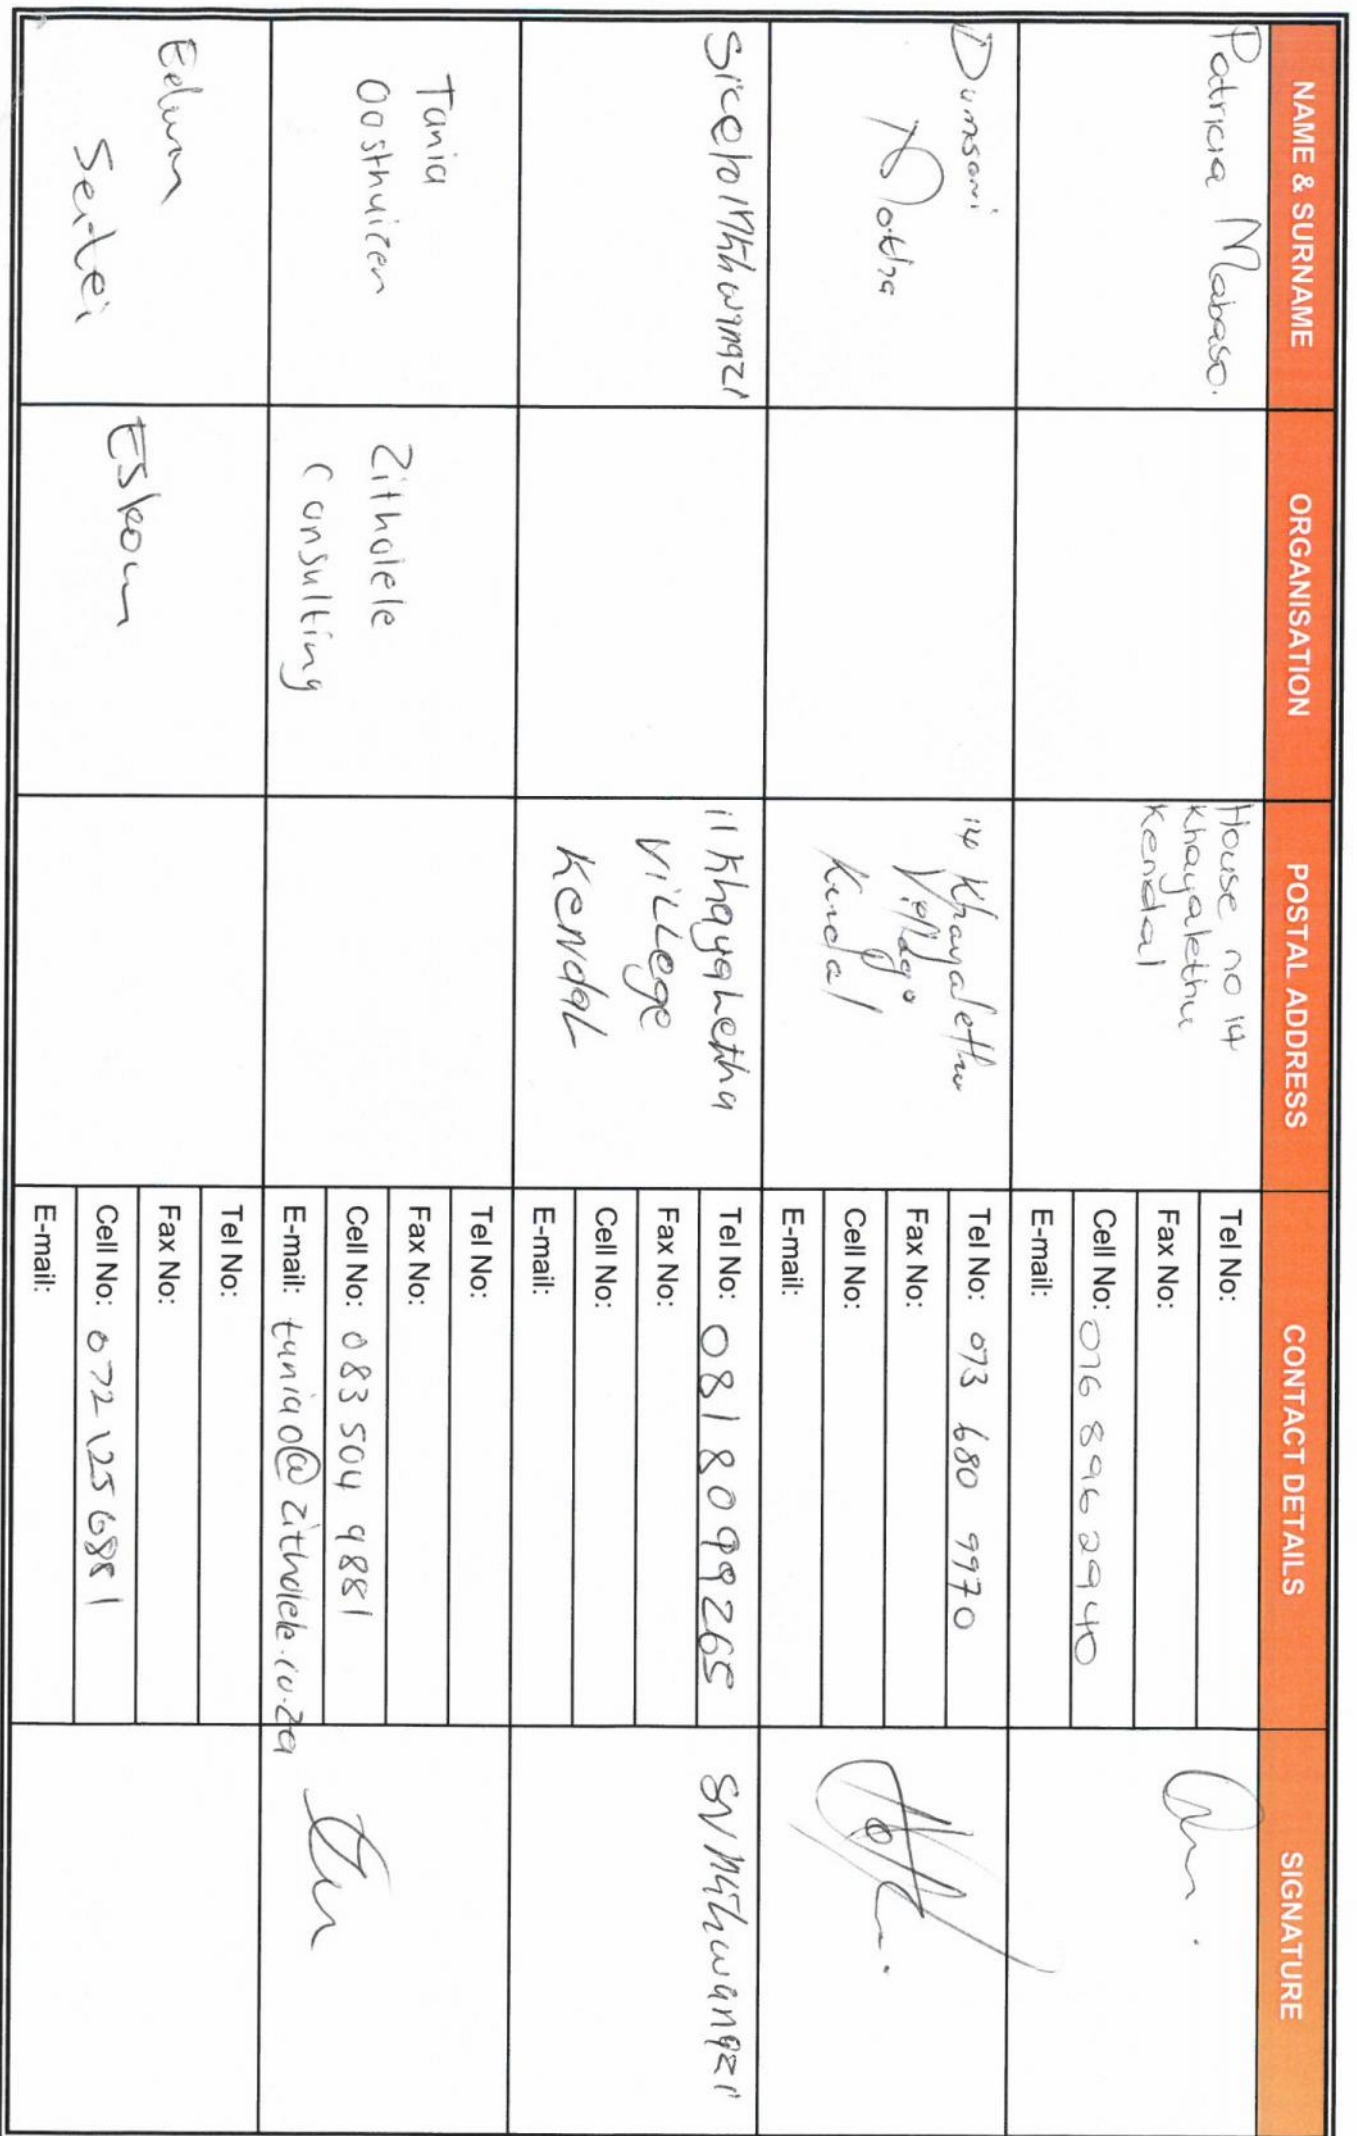 NAME & SURNAME ORGANISATION POSTAL ADDRESS CONTACT DETAILS SIGNATURE
Patricia Mabaso.
House no 14
Khayalethu
Kendal
Tel No:
Fax No:
Cell No: 076 896 2940
E-mail:
Dumsani
14 Khayalethu
Village
Kendal
Tel No: 073 680 9970
Fax No:
Cell No:
E-mail:
Sicelo Mthwanazi
11 Khayalethu
ViLLage
KendaL
Tel No: 081 809 9265
Fax No:
Cell No:
E-mail:
Tania
Oosthuizen
Zitholele
Consulting
Tel No:
Fax No:
Cell No: 083 504 9881
E-mail: taniao@zitholele.co.za
Eskom
Tel No:
Fax No:
Cell No: 072 125 6881
E-mail: